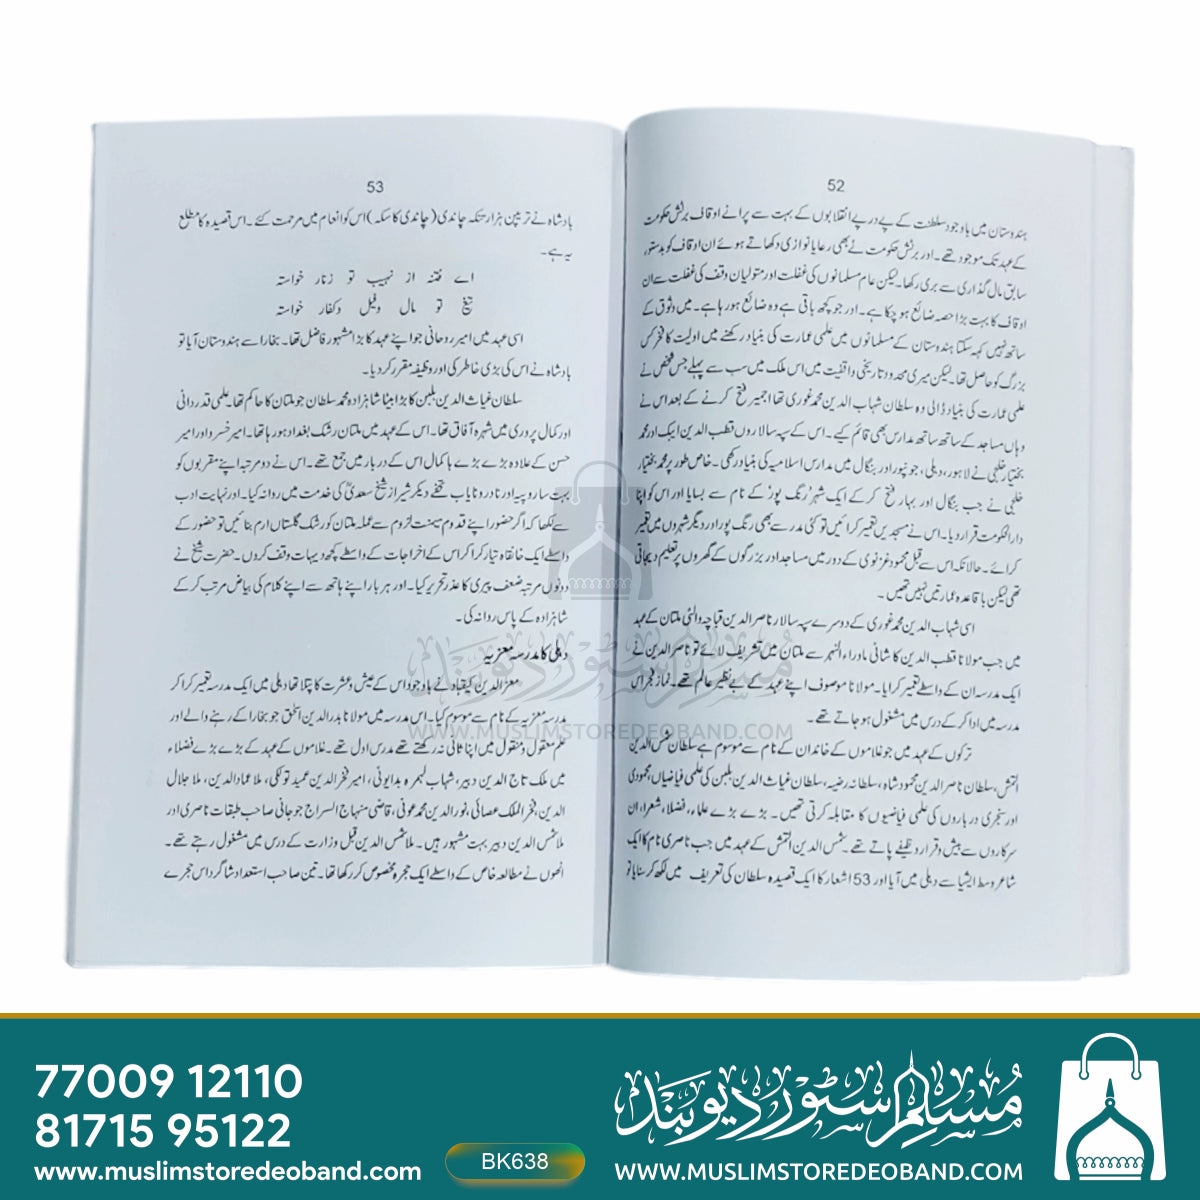 52
ہندوستان میں باوجود سلطنت کے پے درپے انقلابوں کے بہت سے پرانے اوقاف برٹش حکومت
کے عہد تک موجود تھے۔ اور برٹش حکومت نے بھی رعایا نوازی دکھاتے ہوئے ان اوقاف کو بدستور
سابق مال گذاری سے بری رکھا۔ لیکن عام مسلمانوں کی غفلت اور متولیان وقف کی غفلت سے ان
اوقاف کا بہت بڑا حصہ ضائع ہو چکا ہے۔ اور جو کچھ باقی ہے وہ ضائع ہو رہا ہے۔ میں وثوق کے
ساتھ نہیں کہہ سکتا ہندوستان کے مسلمانوں میں علمی عمارت کی بنیاد رکھنے میں اولیت کا فخر کس
بزرگ کو حاصل تھا۔ لیکن میری محدود تاریخی واقفیت میں اس ملک میں سب سے پہلے جس شخص نے
علمی عمارت کی بنیاد ڈالی وہ سلطان شہاب الدین محمد غوری تھا اجمیر فتح کرنے کے بعد اس نے
وہاں مساجد کے ساتھ ساتھ مدارس بھی قائم کیے۔ اس کے سپہ سالاروں قطب الدین ایبک اور محمد
بختیار خلجی نے لاہور، دہلی، جونپور اور بنگال میں مدارس اسلامیہ کی بنیاد رکھی۔ خاص طور پر محمد بختیار
خلجی نے جب بنگال اور بہار فتح کر کے ایک شہر رنگ پور کے نام سے بسایا اور اس کو اپنا
دارالحکومت قرار دیا۔ اس نے مسجدیں تعمیر کرائیں تو کئی مدرسے بھی رنگ پور اور دیگر شہروں میں تعمیر
کرائے۔ حالانکہ اس سے قبل محمود غزنوی کے دور میں مساجد اور بزرگوں کے گھروں پر تعلیم دیجاتی
تھی لیکن باقاعدہ عمارتیں نہیں تھیں۔
اسی شہاب الدین محمد غوری کے دوسرے سپہ سالار ناصر الدین قباچہ والئی ملتان کے عہد
میں جب مولانا قطب الدین کاشانی ماوراء النہر سے ملتان میں تشریف لائے تو ناصر الدین نے
ایک مدرسہ ان کے واسطے تعمیر کرایا۔ مولانا موصوف اپنے عہد کے بے نظیر عالم تھے۔ نماز فجر اس
مدرسہ میں ادا کر کے درس میں مشغول ہو جاتے تھے۔
ترکوں کے عہد میں جو غلاموں کے خاندان کے نام سے موسوم ہے سلطان شمس الدین
التمش، سلطان ناصر الدین محمود شاہ، سلطانہ رضیہ، سلطان غیاث الدین بلبن کی علمی فیاضیاں، محمودی
اور سنجری درباروں کی علمی فیاضیوں کا مقابلہ کرتی تھیں۔ بڑے بڑے علماء، فضلا، شعرا، ان
سرکاروں سے بیش و قرار وظیفے پاتے تھے۔ شمس الدین التمش کے عہد میں جب ناصری نام کا ایک
شاعر وسط ایشیا سے دہلی میں آیا اور 53 اشعار کا ایک قصیدہ سلطان کی تعریف میں لکھ کر سنایا تو
53
بادشاہ نے ترپن ہزار تنکہ چاندی (چاندی کا سکہ) اس کو انعام میں مرحمت کئے۔ اس قصیدہ کا مطلع
یہ ہے۔
اے فتنہ از نہیب تو زنہار خواستہ
تیغ تو مال و فیل و کفار خواستہ
اسی عہد میں امیر روحانی جو اپنے عہد کا بڑا مشہور فاضل تھا۔ بخارا سے ہندوستان آیا تو
بادشاہ نے اس کی بڑی خاطر کی اور وظیفہ مقرر کر دیا۔
سلطان غیاث الدین بلبن کا بڑا بیٹا شاہزادہ محمد سلطان جو ملتان کا حاکم تھا۔ علمی قدردانی
اور کمال پروری میں شہرہ آفاق تھا۔ اس کے عہد میں ملتان رشک بغداد ہو رہا تھا۔ امیر خسرو اور امیر
حسن کے علاوہ بڑے بڑے باکمال اس کے دربار میں جمع تھے۔ اس نے دو مرتبہ اپنے مقربوں کو
بہت سا روپیہ اور نادر و نایاب تحفے دیکر شیراز شیخ سعدیؒ کی خدمت میں روانہ کیا۔ اور نہایت ادب
سے لکھا کہ اگر حضور اپنے قدوم میمنت لزوم سے عملہ ملتان کو رشک گلستاں ارم بنائیں تو حضور کے
واسطے ایک خانقاہ تیار کرا کر اس کے اخراجات کے واسطے کچھ دیہات وقف کردوں۔ حضرت شیخ نے
دونوں مرتبہ ضعف پیری کا عذر تحریر کیا۔ اور ہر بار اپنے ہاتھ سے اپنے کلام کی بیاض مرتب کر کے
شاہزادہ کے پاس روانہ کی۔
دہلی کا مدرسہ معزیہ
معز الدین کیقباد نے باوجود اس کے عیش و عشرت کا پتلا تھا دہلی میں ایک مدرسہ تعمیر کرا کر
مدرسہ معزیہ کے نام سے موسوم کیا۔ اس مدرسہ میں مولانا بدر الدین اسحٰق جو بخارا کے رہنے والے اور
علم معقول و منقول میں اپنا ثانی نہ رکھتے تھے مدرس اول تھے۔ غلاموں کے عہد کے بڑے بڑے فضلاء
میں ملک تاج الدین دبیر، شہاب لہمرہ بدایونی، امیر فخر الدین عمید تولکی، ملا عماد الدین، ملا جلال
الدین، فخر الملک عصائی، نور الدین محمد عوفی، قاضی منہاج السراج جوجانی صاحب طبقات ناصری اور
ملا شمس الدین دبیر بہت مشہور ہیں۔ ملا شمس الدین قبل وزارت کے درس میں مشغول رہتے تھے۔
انھوں نے مطالعہ خاص کے واسطے ایک حجرہ مخصوص کر رکھا تھا۔ تین صاحب استعداد شاگرد اس حجرے
مسلم سٹور دیوبند
WWW.MUSLIMSTOREDEOBAND.COM
77009 12110
81715 95122
www.muslimstoredeoband.com
BK638
مسلم سٹور دیوبند
WWW.MUSLIMSTOREDEOBAND.COM